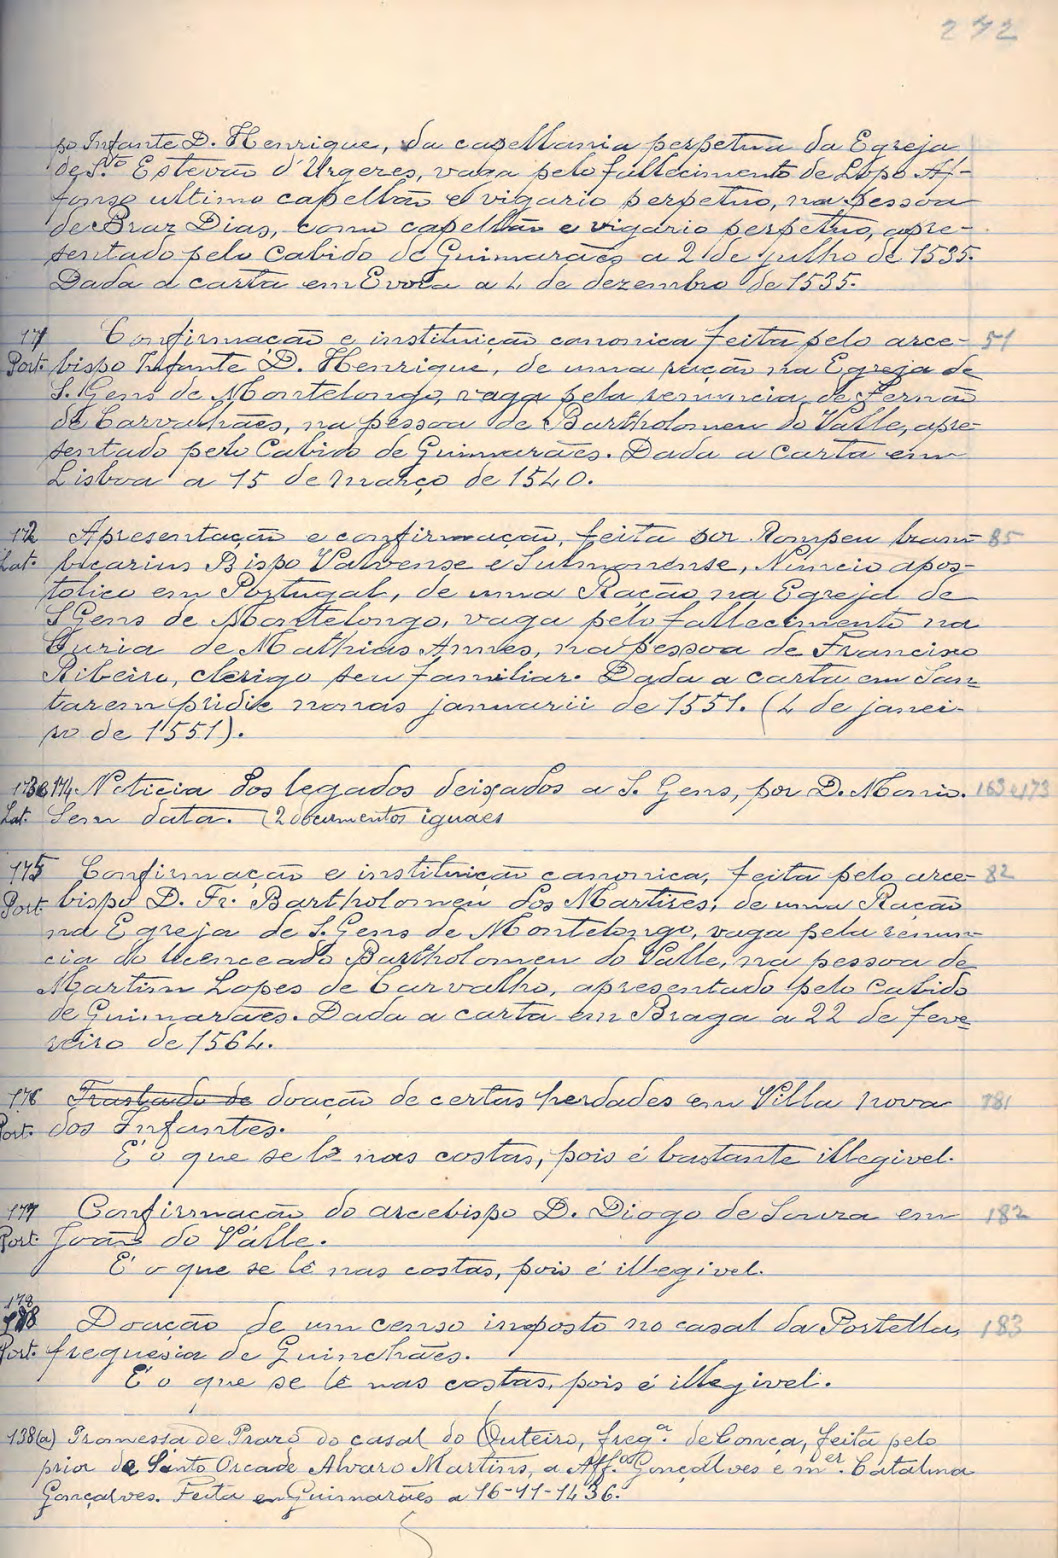 272
po Infante D. Henrique, da capellania perpetua da Egreja
de S.to Estevão d'Urgeres, vaga pelo fallecimento de Lopo Af-
fonso ultimo capellão e vigario perpetuo, na pessoa
de Braz Dias, como capellão e vigario perpetuo, apre-
sentado pelo Cabido de Guimarães a 2 de julho de 1535.
Dada a carta em Evora a 4 de dezembro de 1535.
171 Confirmação e instituição canonica feita pelo arce- 51
Port. bispo Infante D. Henrique, de uma ração na Egreja de
S. Gens de Montelongo, vaga pela renuncia de Fernão
de Carvalhães, na pessoa de Bartholomeu do Valle, apre-
sentado pelo Cabido de Guimarães. Dada a carta em
Lisboa a 15 de março de 1540.
172 Apresentação e confirmação, feita por Pompeu Zam- 85
Lat. bicarius Bispo Valvense e Sulmonense, Nuncio apos-
tolico em Portugal, de uma Ração na Egreja de
S Gens de Montelongo, vaga pelo fallecimento na
Curia de Mathias Annes, na pessoa de Francisco
Ribeiro, clerigo seu familiar. Dada a carta em San-
tarem pridie nonas januarii de 1551. (4 de janei-
ro de 1551).
173 e 174 Noticia dos legados deixados a S. Gens, por D. Monio. 163 e 173
Lat. Sem data. (2 documentos iguaes
175 Confirmação e instituição canonica, feita pelo arce- 82
Port bispo D. Fr. Bartholomeu dos Martires, de uma Ração
na Egreja de S. Gens de Montelongo, vaga pela renun-
cia do licenceado Bartholomeu do Valle, na pessoa de
Martim Lopes de Carvalho, apresentado pelo Cabido
de Guimarães. Dada a carta em Braga a 22 de feve-
reiro de 1564.
176 Trastado de doação de certas herdades em Villa nova 181
Port. dos Infantes.
É o que se lê nas costas, pois é bastante illegivel.
177 Confirmação do arcebispo D. Diogo de Souza em 182
Port. João do Valle.
É o que se lê nas costas, pois é illegivel.
178
178 Doação de um censo imposto no casal da Portella, 183
Port. freguesia de Guinchães.
É o que se lê nas costas, pois é illegivel.
138(a) Promessa de Prazo do casal do Outeiro, freg.a de Conça, feita pelo
prior de Santo Orcade Alvaro Martins, a Aff.o Gonçalves e m.er Catalina
Gonçalves. Feita em Guimarães a 16-11-1436.